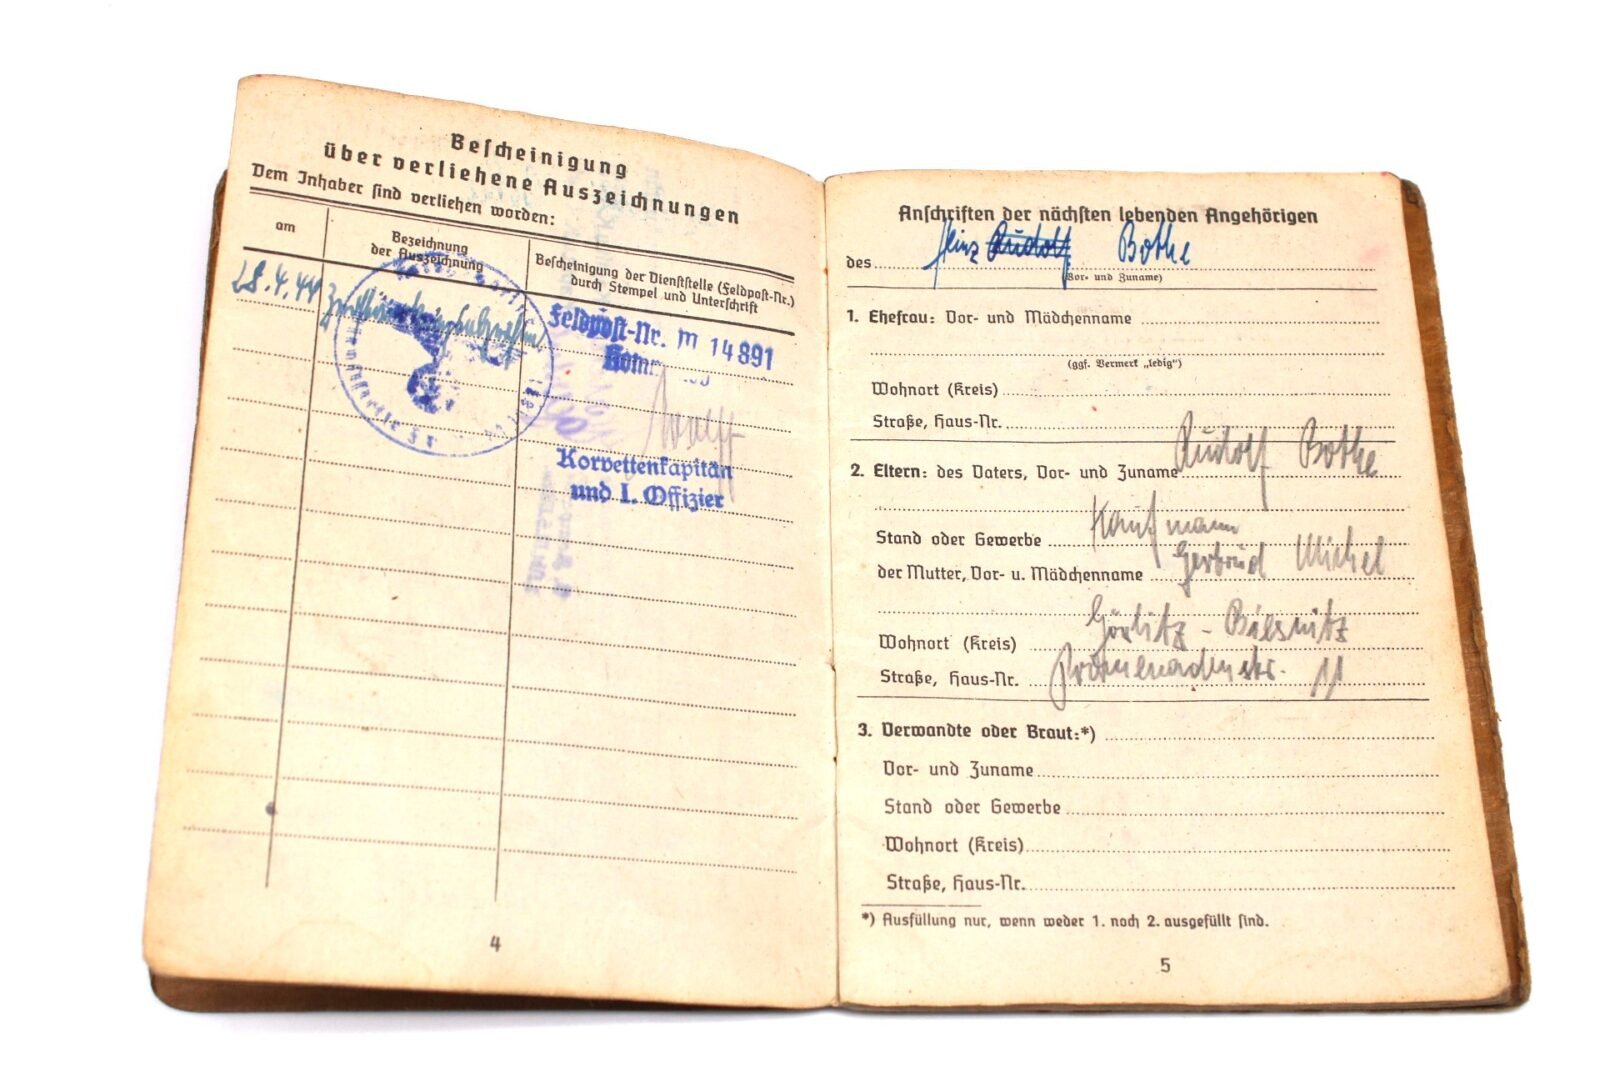 Bescheinigung
über verliehene Auszeichnungen
Dem Inhaber sind verliehen worden:
am
Bezeichnung
der Auszeichnung
Bescheinigung der Dienststelle (Feldpost-Nr.)
durch Stempel und Unterschrift
28.4.44 Zerstörerkriegsabzeichen
Feldpost-Nr. M 14891
Korvettenkapitän
und I. Offizier
4
Anschriften der nächsten lebenden Angehörigen
des Heinz Rudolf Bothe
(Vor- und Zuname)
1. Ehefrau: Vor- und Mädchenname
(ggf. Vermerk „ledig“)
Wohnort (Kreis)
Straße, Haus-Nr.
2. Eltern: des Vaters, Vor- und Zuname Rudolf Bothe
Stand oder Gewerbe Kaufmann
der Mutter, Vor- u. Mädchenname Gertrud Michel
Wohnort (Kreis) Görlitz - Biesnitz
Straße, Haus-Nr. Promenadenstr. 11
3. Verwandte oder Braut:*)
Vor- und Zuname
Stand oder Gewerbe
Wohnort (Kreis)
Straße, Haus-Nr.
*) Ausfüllung nur, wenn weder 1. noch 2. ausgefüllt sind.
5